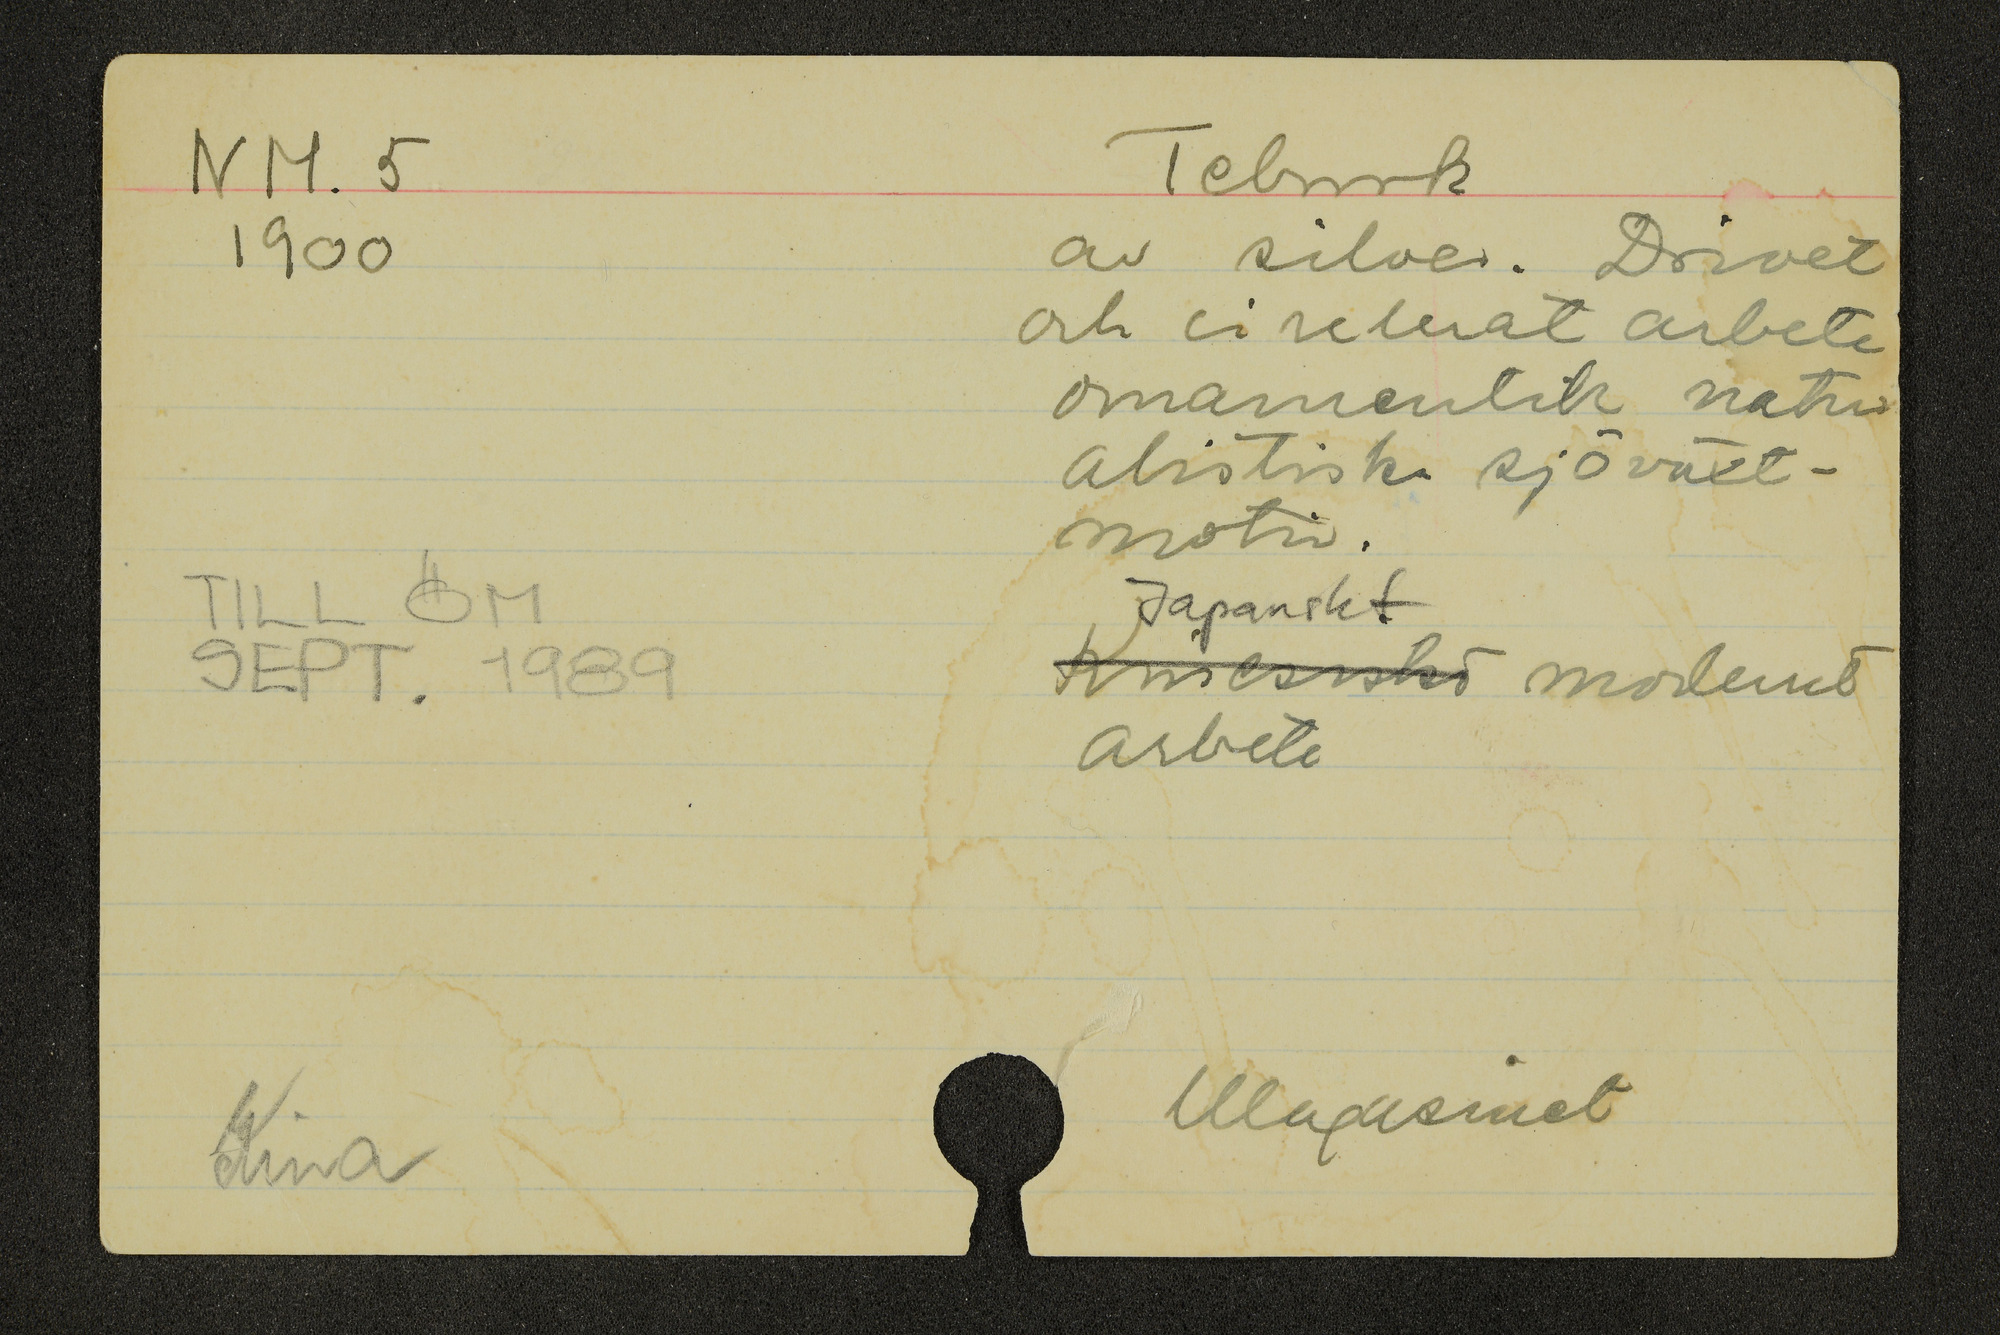 NM. 5
1900
Teburk
av silver. Drivet
och ciselerat arbete
ornamentik natur
alistiska sjöväxt-
motiv.
Japanskt
Kinesiskt modernt
arbete
TILL ÖM
SEPT. 1989
Kina
Magasinet